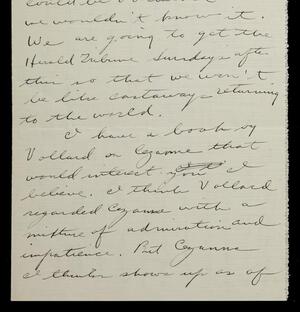 could be
we wouldn't know it.
We are going to get the
Herald Tribune Sundays after
this so that we won't
be like castaways returning
to the world.
I have a book by
Vollard on Cezanne that
would interest you I
believe. I think Vollard
regarded Cezanne with a
mixture of admiration and
impatience. But Cezanne
I think shows up as of